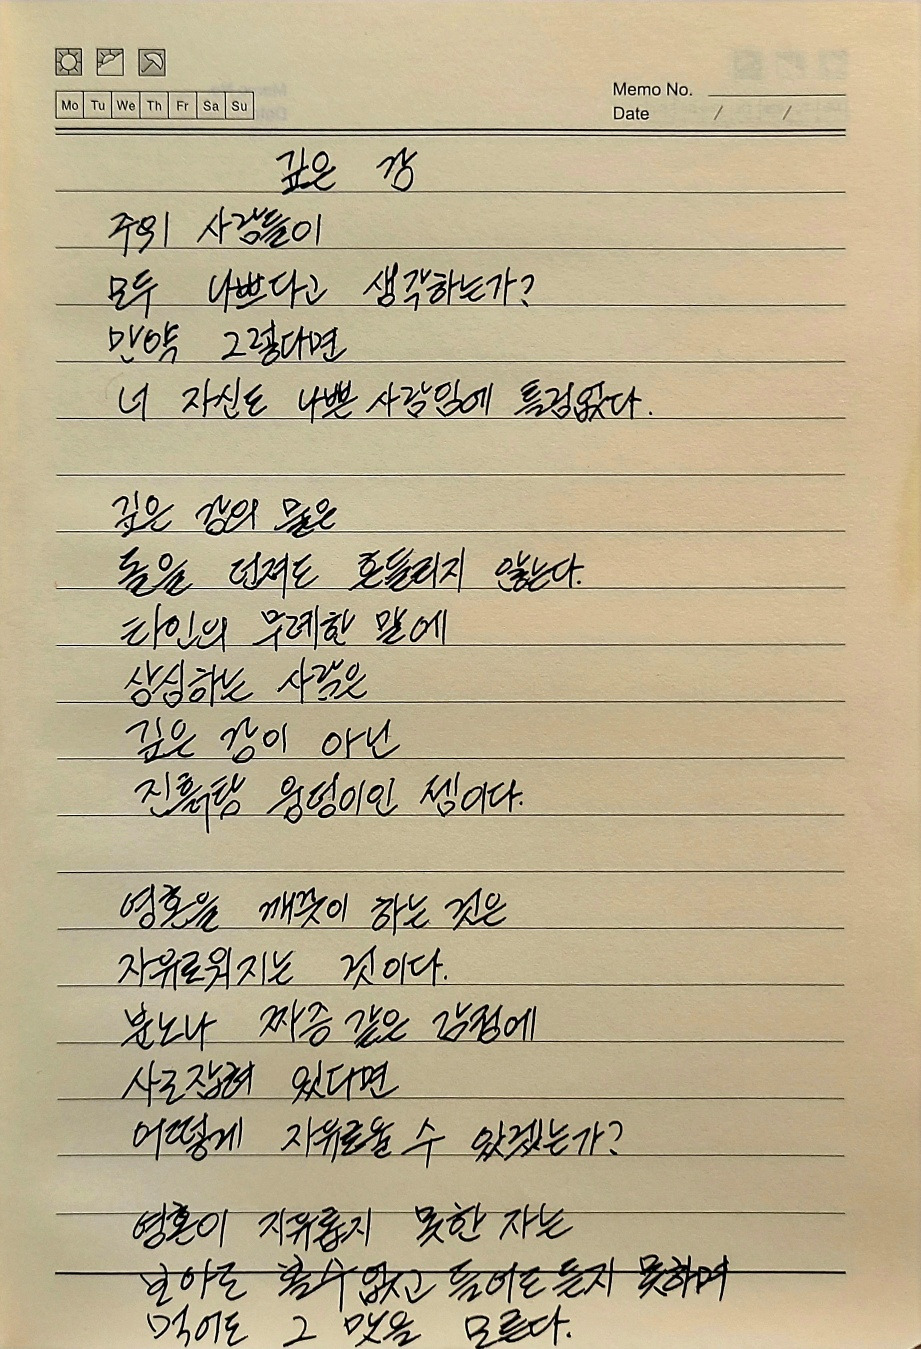 Mo Tu We Th Fr Sa Su
Memo No.
Date / /
깊은 강
주위 사람들이
모두 나쁘다고 생각하는가?
만약 그렇다면
너 자신도 나쁜 사람임에 틀림없다.
깊은 강의 물은
돌을 던져도 흔들리지 않는다.
타인의 무례한 말에
상심하는 사람은
깊은 강이 아닌
진흙탕 웅덩이인 셈이다.
영혼을 깨끗이 하는 것은
자유로워지는 것이다.
분노나 짜증 같은 감정에
사로잡혀 있다면
어떻게 자유로울 수 있겠는가?
영혼이 자유롭지 못한 자는
보아도 볼 수 없고 들어도 듣지 못하며
먹어도 그 맛을 모른다.